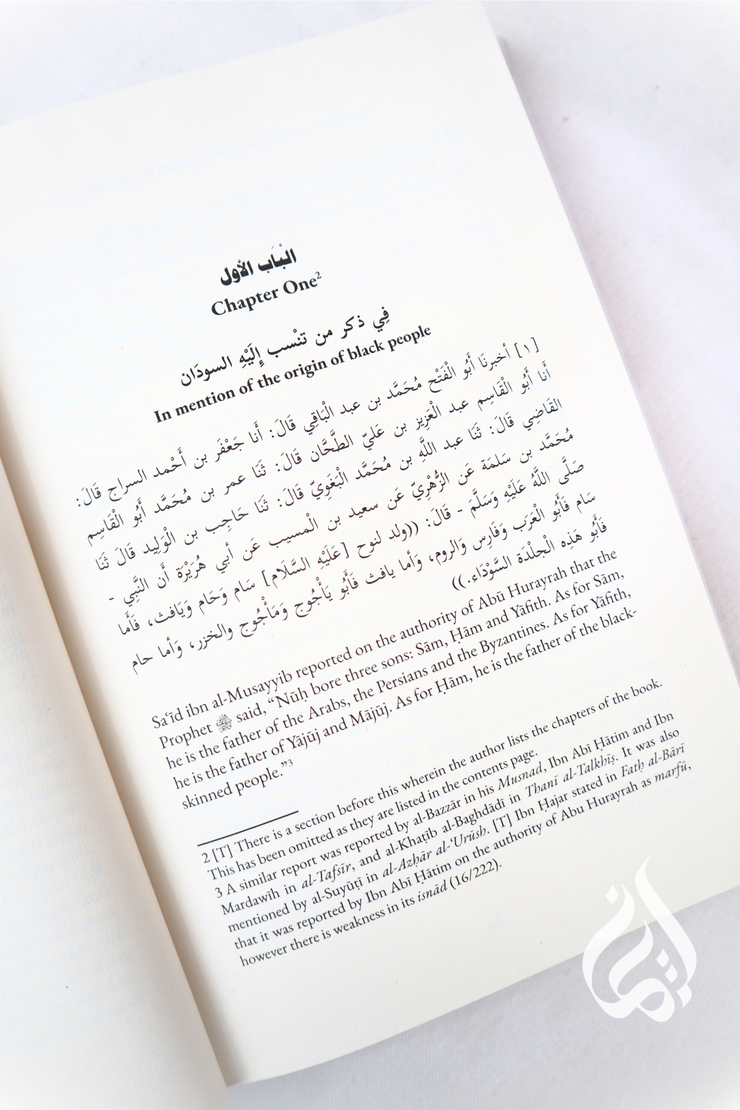 الْبَاب الأول
Chapter One²
فِي ذكر من تنْسب إِلَيْهِ السودَان
In mention of the origin of black people
[١] أخبرنَا أَبُو الْفَتْح مُحَمَّد بن عبد الْبَاقِي قَالَ: أَنا جَعْفَر بن أَحْمد السراج قَالَ:
أَنا أَبُو الْقَاسِم عبد الْعَزِيز بن عَليّ الطَّحَّان قَالَ: ثَنَا عمر بن مُحَمَّد أَبُو الْقَاسِم
القَاضِي قَالَ: ثَنَا عبد اللَّهِ بن مُحَمَّد الْبَغَوِيّ قَالَ: ثَنَا حَاجِب بن الْوَلِيد قَالَ ثَنَا
مُحَمَّد بن سَلمَة عَن الزُّهْرِيّ عَن سعيد بن الْمسيب عَن أبي هُرَيْرَة أَن النَّبِي -
صَلَّى اللَّهُ عَلَيْهِ وَسَلَّمَ - قَالَ: ((ولد لنوح [عَلَيْهِ السَّلَام] سَام وَحَام وَيَافث، فَأَما
سَام فَأَبُو الْعَرَب وَفَارِس وَالروم، وَأما يافث فَأَبُو يَأْجُوج وَمَأْجُوج والخزر، وَأما حام
فَأَبُو هَذِه الْجلْدَة السَّوْدَاء.))
Sa‘īd ibn al-Musayyib reported on the authority of Abū Hurayrah that the
Prophet ﷺ said, “Nūḥ bore three sons: Sām, Ḥām and Yāfith. As for Sām,
he is the father of the Arabs, the Persians and the Byzantines. As for Yāfith,
he is the father of Yājūj and Mājūj. As for Ḥām, he is the father of the black-
skinned people.”³
2 [T] There is a section before this wherein the author lists the chapters of the book.
This has been omitted as they are listed in the contents page.
3 A similar report was reported by al-Bazzār in his Musnad, Ibn Abī Ḥātim and Ibn
Mardawīh in al-Tafsīr, and al-Khaṭīb al-Baghdādī in Thanī al-Talkhīṣ. It was also
mentioned by al-Suyūṭī in al-Azhār al-‘Urūsh. [T] Ibn Ḥajar stated in Fatḥ al-Bārī
that it was reported by Ibn Abī Ḥātim on the authority of Abu Hurayrah as marfū,
however there is weakness in its isnād (16/222).